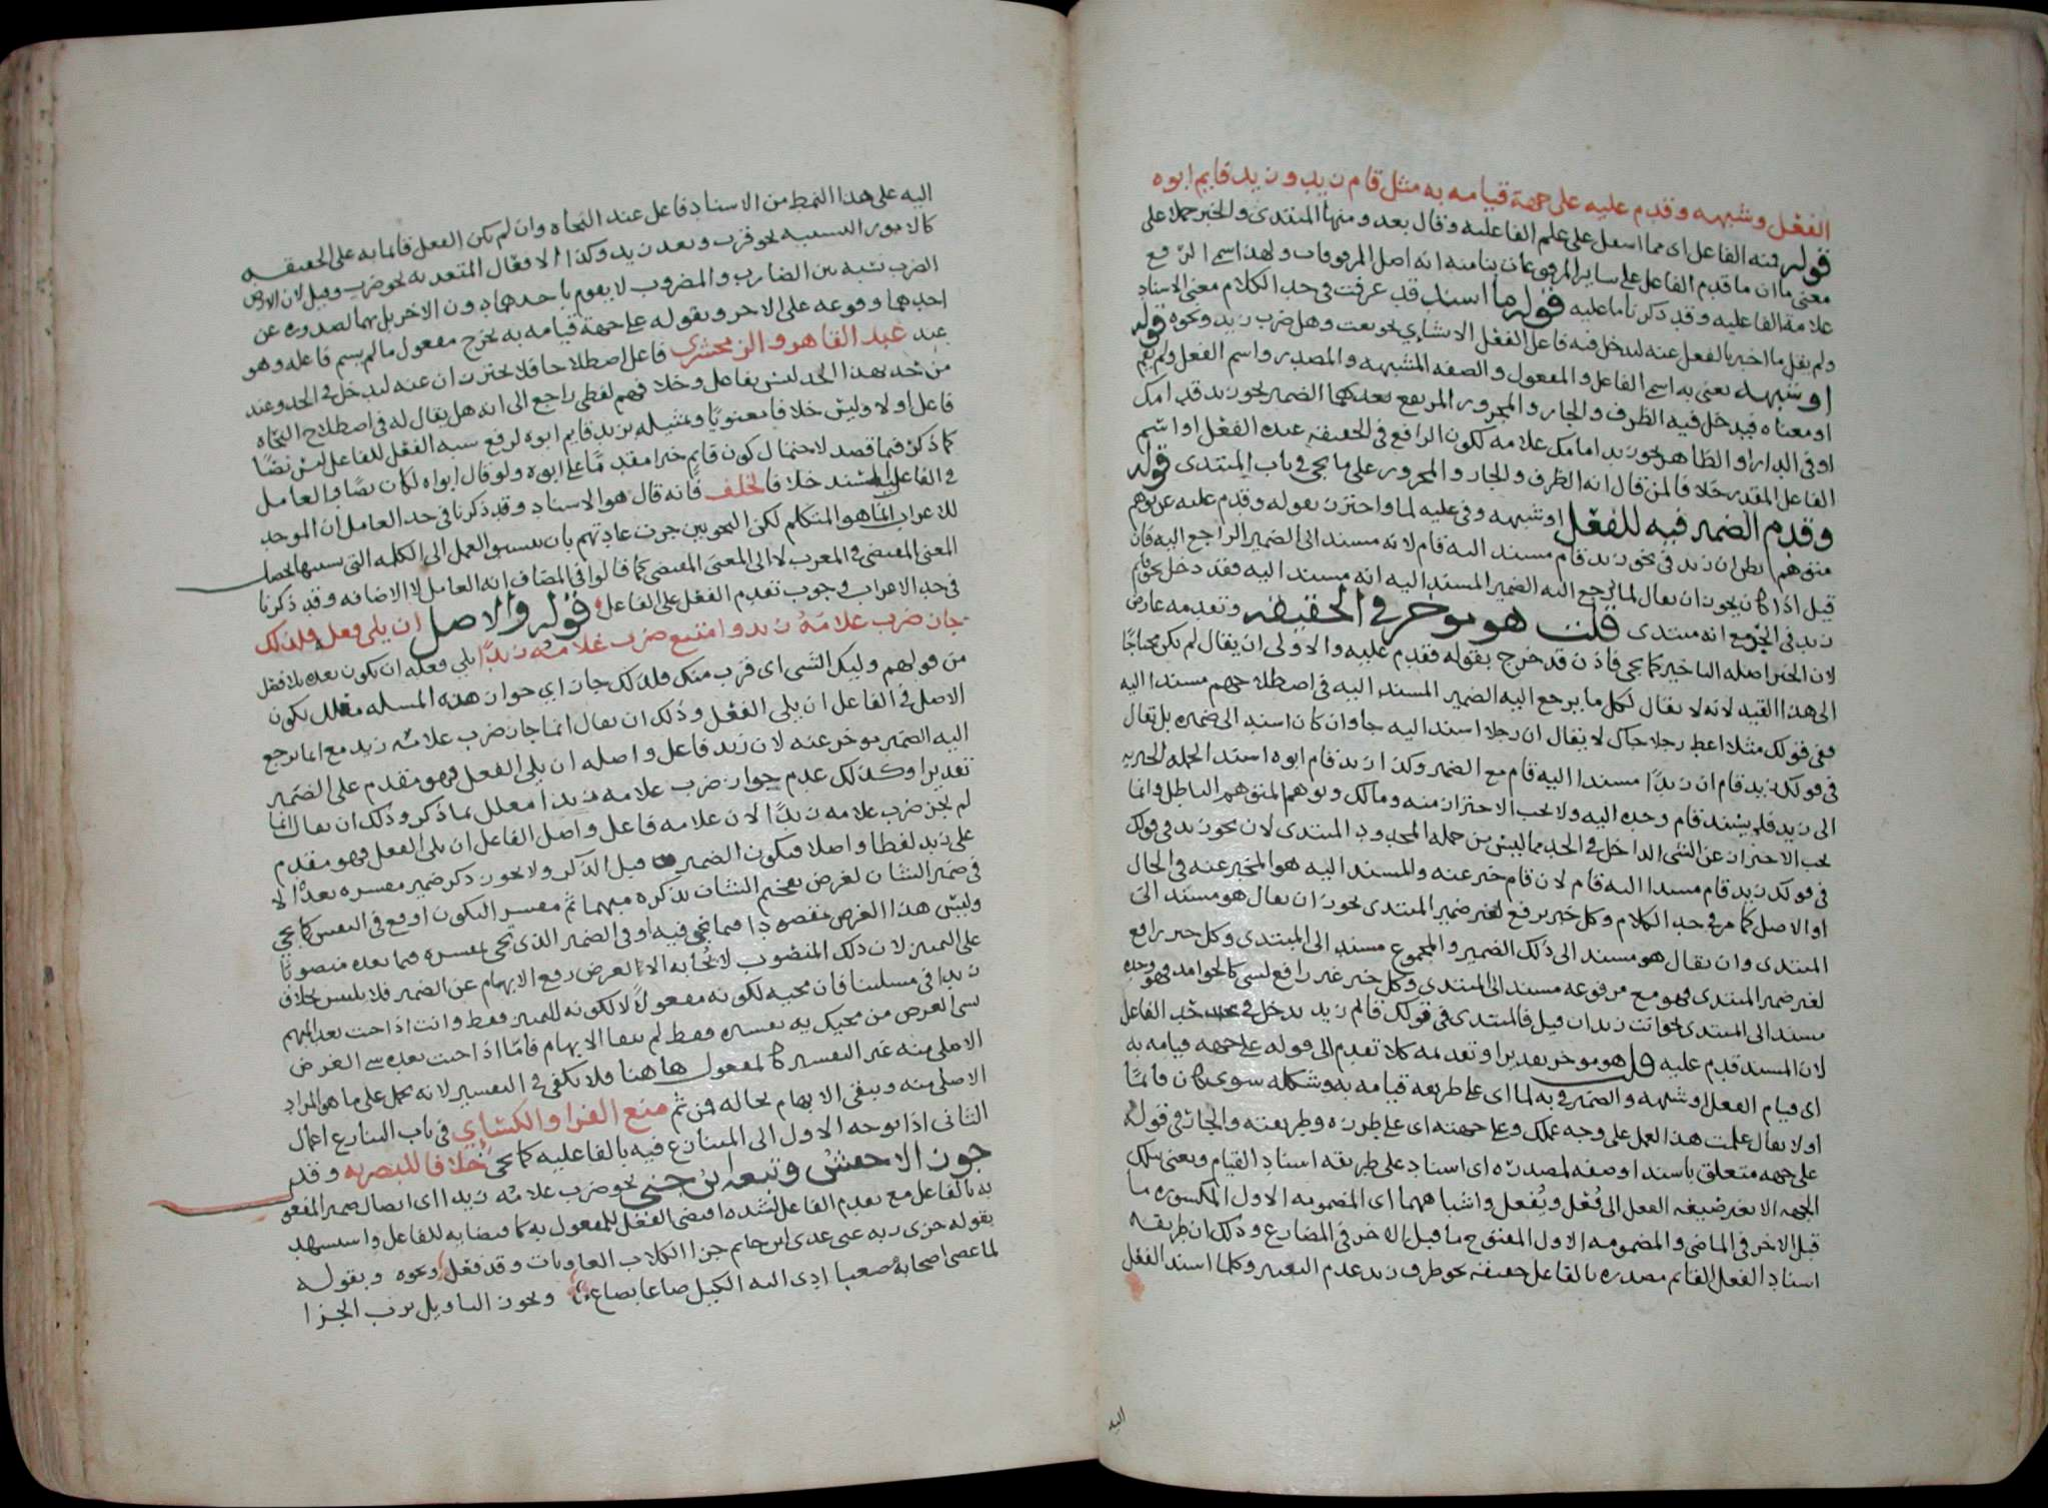 الفعل وشبهه وقدم عليه على جهة قيامه به مثل قام زيد و زيد قايم ابوه
قوله فمنه الفاعل اى مما اشتمل على علم الفاعليه وقال بعد ومنها المبتدى والخبر حملا على
معنى ما ان ما قدم الفاعل على ساير المرفوعات بنا منه انه اصل المرفوعات ولهذا سمى الرفع
علامة الفاعليه وقد ذكرنا ما عليه قوله ما اسند قد عرفت فى حد الكلام معنى الاسناد
ولم يقل ما اخبر بالفعل عنه ليدخل فيه فاعل الفعل الانشاي نحو بعت وهل ضرب زيد ونحوه قوله
او شبهه يعنى به اسم الفاعل والمفعول والصفه المشبهه والمصدر واسم الفعل ولم يقل
او معناه فيدخل فيه الظرف والجار والمجرور المرتفع بعدهما الضمير نحو زيد قدامك
او فى الدار او الظاهر نحو زيد امامك علامه لكون الرافع فى الحقيقه عنده الفعل او اسم
الفاعل المقدر خلافا لمن قال انه الظرف والجار والمجرور على ما يجى فى باب المبتدى قوله
وقدم الضمير فيه للفعل او شبهه وفى عليه لما واحترز بقوله وقدم عليه عن توهم
متوهم يظن ان زيد فى نحو زيد قام مسند اليه قام لانه مسند الى الضمير الراجع اليه فان
قيل اذا كان يجوز ان يقال لما يرجع اليه الضمير المسند اليه انه مسند اليه فقد دخل نحو قايم
زيد فى الحد مع انه مبتدى قلت هو موخر فى الحقيقه وتقدمه عارض
لان الخبر اصله التاخير كما يجى فاذن قد خرج بقوله فقدم عليه والاولى ان يقال لم يكن محتاجًا
الى هذا القيد لانه لا يقال لكل ما يرجع اليه الضمير المسند اليه فى اصطلاحهم مسند اليه
ففى قولك مثلا اعط رجلا جاك لا يقال ان رجلا اسند اليه جا وان كان اسند الى ضميره بل تقال
فى قولك زيد قام ان زيدًا مسند اليه قام مع الضمير وكذا زيد قام ابوه اسند الجمله الخبريه
الى زيد فلم يسند قام وحده اليه ولا يجب الاحتراز منه ومالك وتوهم المتوهم الباطل وانما
يجب الاحتراز عن الشى الداخل فى الحد مما ليس من جمله المحدود المبتدى لان نحو زيد فى قولك
فى قولك زيد قام مسند اليه قام لان قام خبر عنه والمسند اليه هو المخبر عنه فى الحال
او الاصل كما مر فى حد الكلام وكل خبر يرفع لغير ضمير المبتدى يجوز ان يقال هو مسند الى
المبتدى وان يقال هو مسند الى ذلك الضمير والمجموع مسند الى المبتدى وكل خبر رافع
لغير ضمير المبتدى فهو مع مرفوعه مسند الى المبتدى وكل خبر غير رافع لشى كالجوامد فهو وحده
مسند الى المبتدى نحو انت زيد ان قيل فالمبتدى فى قولك قايم زيد يدخل فى حد الفاعل
لان المسند قدم عليه قلت هو موخر تقديرا وتقدمه كلا تقدم الى قوله على جهه قيامه به
اى قيام الفعل او شبهه والضمير فى به لما اى على طريقه قيامه به وشكله سوى كان قايمًا
اولا يقال علمت هذا العمل على وجه عملك وعلى جهته اى على طرزه وطريقته والجار فى قوله
على جهه متعلق باسند او صفه لمصدره اى اسناد على طريقه اسناد القيام ويعنى بتلك
الجهه الا يغير صيغه الفعل الى فُعل ويُفعل واشباههما اى المضمومه الاول المكسوره ما
قبل الاخر فى الماضى والمضمومه الاول المفتوح ما قبل الاخر فى المضارع وذلك ان طريقه
اسناد الفعل القايم مصدره بالفاعل حقيقه نحو ظرف زيد عدم التغيير وكلما اسند الفعل
اليه
اليه على هذا النمط من الاسناد فاعل عند النحاه وان لم يكن الفعل قايما به على الحقيقه
كالامور النسبيه نحو قرب وبعد زيد وكذا الافعال المتعديه نحو ضرب وقيل لان الارض
الضرب نسبه بين الضارب والمضروب لا يقوم باحدهما دون الاخر بل بهما لصدوره عن
احدهما ووقوعه على الاخر وبقوله على جهة قيامه به يخرج مفعول ما لم يسم فاعله وهو
عند عبد القاهر والزمخشرى فاعل اصطلاحا فلا يحترزان عنه ليدخل فى الحد وعند
من حده بهذا الحد ليس بفاعل وخلافهم لفظى راجع الى انه هل يقال له فى اصطلاح النحاه
فاعل اولا وليس خلافا معنويًا وتمثيله بزيد قايم ابوه لرفع شبه الفعل للفاعل ليس نصًا
كما ذكر فيما قصد لاحتمال كون قايم خبرا مقدمًا على ابوه ولو قال ابواه لكان نصًا والعامل
فى الفاعل المسند خلافا لخلف فانه قال هو الاسناد وقد ذكرنا فى حد العامل ان الموجد
للاعراب انما هو المتكلم لكن النحويين جرت عادتهم بان ينسبوا العمل الى الكلمه التى بسببها يحصل
المعنى المقتضى فى المعرب لا الى المعنى المقتضى كما قالوا فى المضاف انه العامل لا الاضافه وقد ذكرنا
فى حد الاعراب وجوب تقدم الفعل على الفاعل قوله والاصل ان يلى فعله فلذلك
جاز ضرب غلامَهُ زيد وامتنع ضرب غلامُه زيدًا يلى فعله ان يكون بعده بلا فصل
من قولهم وليك الشى اى قرب منك فلذلك جاز اي جواز هذه المسله معلل بكون
الاصل فى الفاعل ان يلى الفعل وذلك ان يقال انما جاز ضرب غلامَه زيد مع انما يرجع
اليه الضمير موخر عنه لان زيد فاعل واصله ان يلى الفعل فهو مقدم على الضمير
تقديرا وكذلك عدم جواز ضرب غلامه زيدا معلل بما ذكر وذلك ان يقال انما
لم يجز ضرب غلامه زيدًا لان غلامه فاعل واصل الفاعل ان يلى الفعل فهو مقدم
على زيد لفظا واصلا فيكون الضمير قبل الذكر ولا يجوز ذكر ضمير مفسره بعده الا
فى ضمير الشان لغرض تفخيم الشان بذكره مبهما ثم مفسر ليكون اوقع فى النفس كما يجى
وليس هذا الغرض مقصودا فيما يجى فيه او فى الضمير الذى يجى مفسره فيما بعده منصوبًا
على التمييز لان ذلك المنصوب لا يجابه الا لغرض رفع الابهام عن الضمير فلا يلبس بخلاف
زيدا فى مسلتنا فان مجيه لكونه مفعولًا لا لكونه للتمييز فقط وانت اذا جيت بعد المبهم
بشى الغرض من مجيك به تفسيره فقط لم يبقا الابهام فاما اذا جيت بعده بشى الغرض
الاصلى منه غير التفسير كالمفعول ها هنا فلا يكفى فى التفسير لانه يحمل على ما هو المراد
الاصلى منه ويبقى الابهام بحاله فمن ثم منع الفرا والكسّاي فى باب التنازع اعمال
الثانى اذا توجه الاول الى المتنازع فيه بالفاعليه كما يجى خلافا للبصريه وقد
جوز الاخفش وتبعه ابن جنى نحو ضرب غلامُه زيدا اى اتصال ضمير المفعول
به بالفاعل مع تقدم الفاعل لشده اقتضى الفعل للمفعول به كاقتضايه للفاعل واستشهد
بقوله جزى ربه عنى عدى ابن حاتم جزا الكلاب العاويات وقد فعل ونحوه وبقوله
لما عصى اصحابه مصعبا ادى اليه الكيل صاعا بصاع ويجوز التاويل برب الجزا